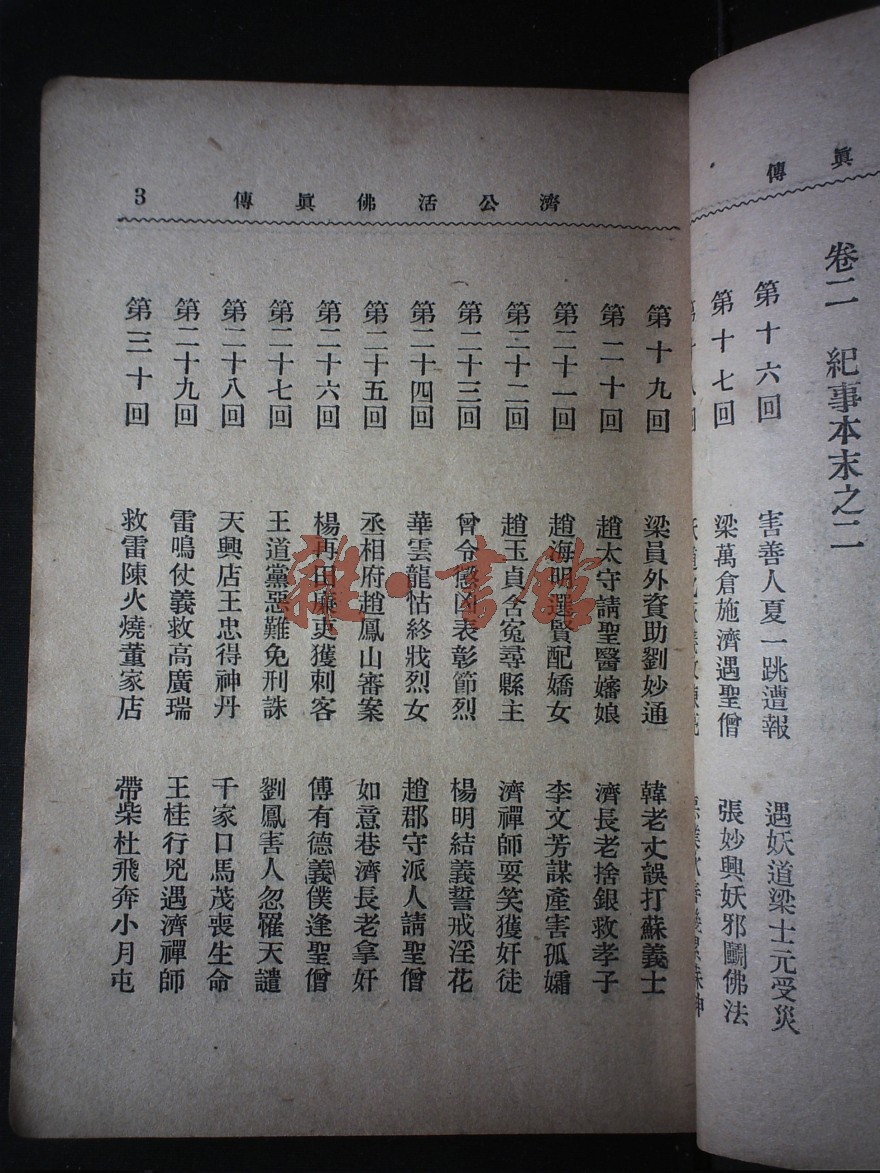 眞傳
卷二 紀事本末之二
第十六回 害善人夏一跳遭報 遇妖道梁士元受災
第十七回 梁萬倉施濟遇聖僧 張妙興妖邪鬭佛法
濟公活佛眞傳 3
第十九回 梁員外資助劉妙通 韓老丈誤打蘇義士
第二十回 趙太守請聖醫嬸娘 濟長老捨銀救孝子
第二十一回 趙海明選賢配嬌女 李文芳謀產害孤孀
第二十二回 趙玉貞含冤尋縣主 濟禪師耍笑獲奸徒
第二十三回 曾令感凶表彰節烈 楊明結義誓戒淫花
第二十四回 華雲龍怙終戕烈女 趙郡守派人請聖僧
第二十五回 丞相府趙鳳山審案 如意巷濟長老拿奸
第二十六回 楊再田廉吏獲刺客 傅有德義僕逢聖僧
第二十七回 王道黨惡難免刑誅 劉鳳害人忽罹天譴
第二十八回 天興店王忠得神丹 千家口馬茂喪生命
第二十九回 雷鳴仗義救高廣瑞 王桂行兇遇濟禪師
第三十回 救雷陳火燒董家店 帶柴杜飛奔小月屯
雜·書館